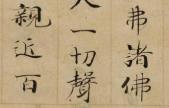 弗諸佛
一切聲
親近百